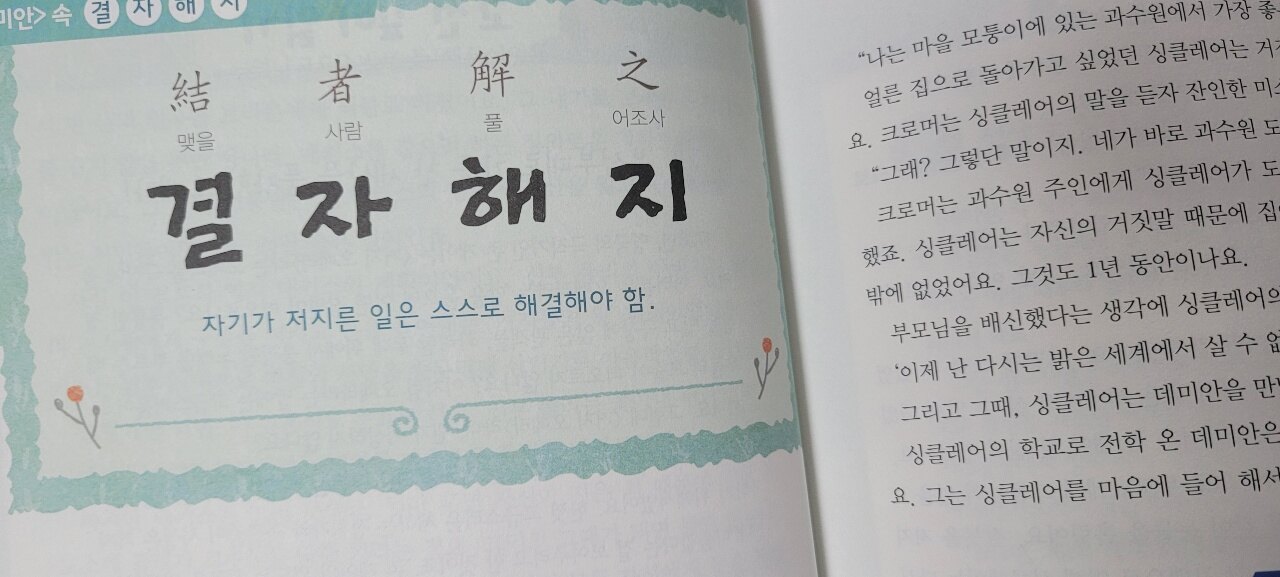 미안> 속 결자해지
結 者 解 之
맺을 사람 풀 어조사
결 자 해 지
자기가 저지른 일은 스스로 해결해야 함.
“나는 마을 모퉁이에 있는 과수원에서 가장
얼른 집으로 돌아가고 싶었던 싱클레어는
요. 크로머는 싱클레어의 말을 듣자 잔인한
“그래? 그렇단 말이지. 네가 바로 과수원
크로머는 과수원 주인에게 싱클레어가
했죠. 싱클레어는 자신의 거짓말 때문에
밖에 없었어요. 그것도 1년 동안이나요.
부모님을 배신했다는 생각에 싱클레어의
‘이제 난 다시는 밝은 세계에서 살 수
그리고 그때, 싱클레어는 데미안을
싱클레어의 학교로 전학 온 데미안은
요. 그는 싱클레어를 마음에 들어 해서